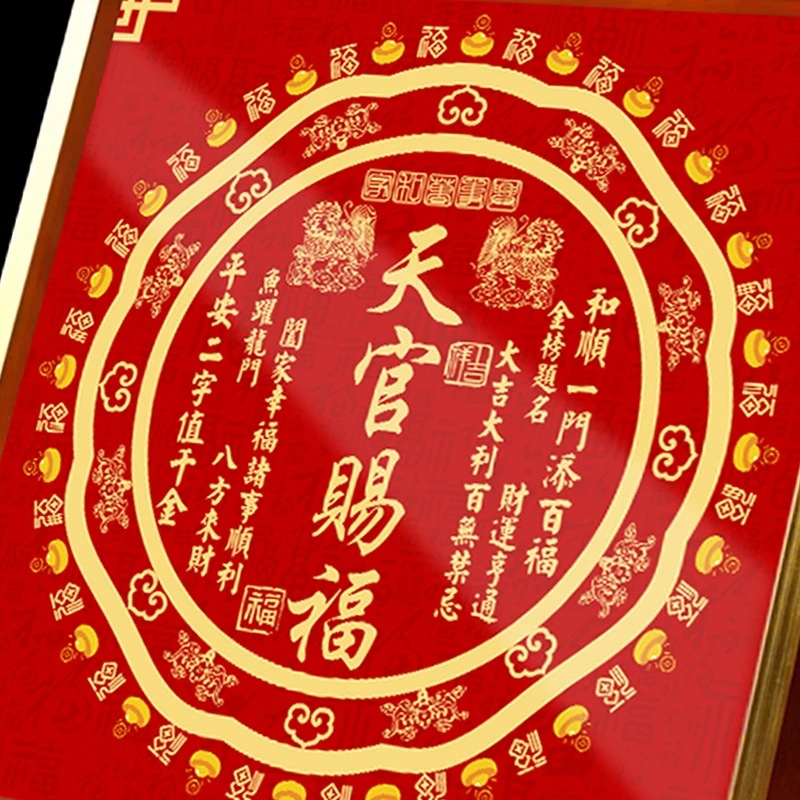 家和萬事興
和順一門添百福
金榜題名
財運亨通
大吉大利百無禁忌
吉祥
天官賜福
福
闔家幸福諸事順利
魚躍龍門
八方來財
平安二字值千金